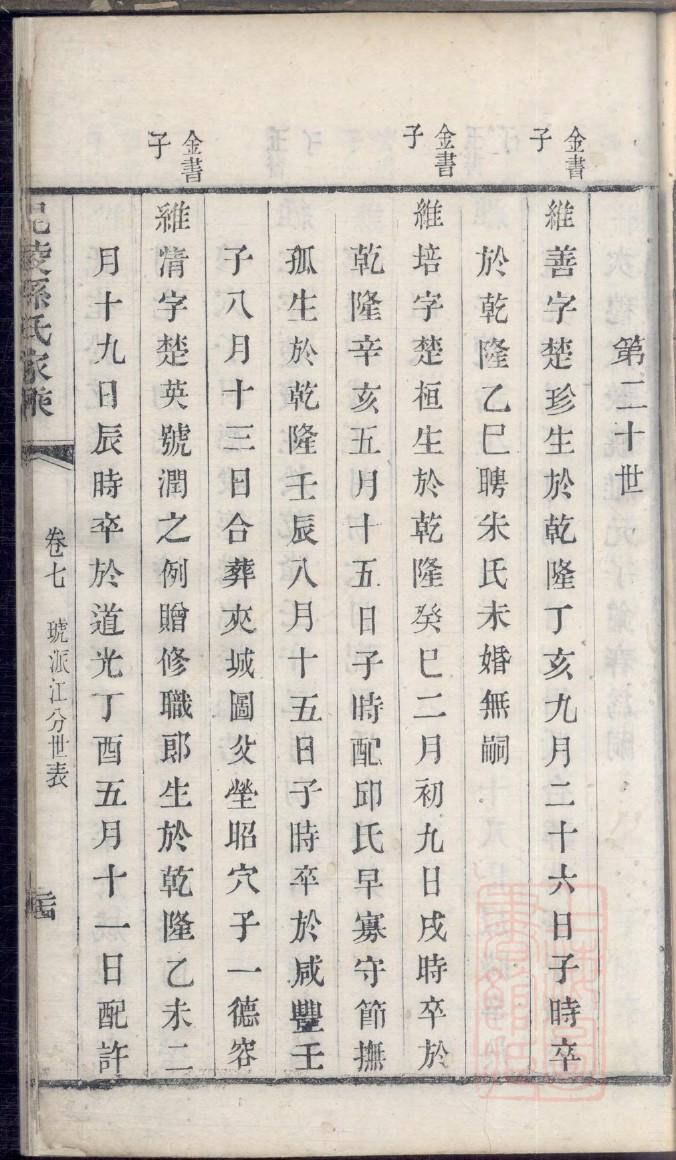 第二十世
金書子
維善字楚珍生於乾隆丁亥九月二十六日子時卒
於乾隆乙巳聘朱氏未婚無嗣
金書子
維培字楚桓生於乾隆癸巳二月初九日戌時卒於
乾隆辛亥五月十五日子時配邱氏早寡守節撫
孤生於乾隆壬辰八月十五日子時卒於咸豐壬
子八月十三日合葬夾城圖父塋昭穴子一德容
金書子
維清字楚英號潤之例贈修職郎生於乾隆乙未二
月十九日辰時卒於道光丁酉五月十一日配許
陵孫氏家乘
卷七 琥派江分世表